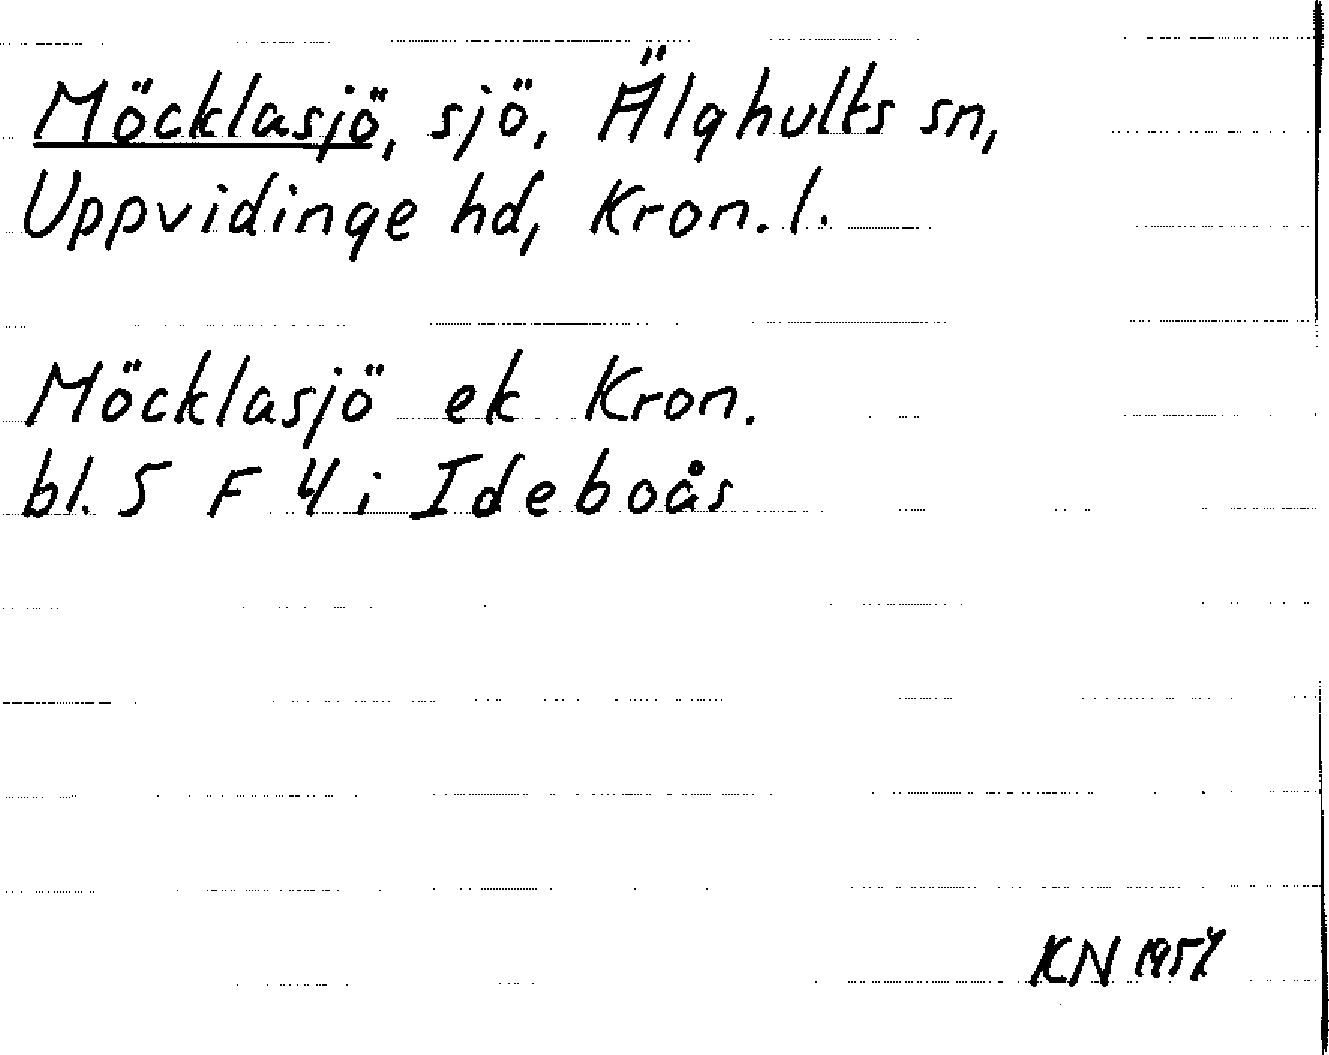 Möcklasjö, sjö, Älghults sn,
Uppvidinge hd, Kron. l.
Möcklasjö ek Kron.
bl. 5 F 4 i Ideboås
KN 1957